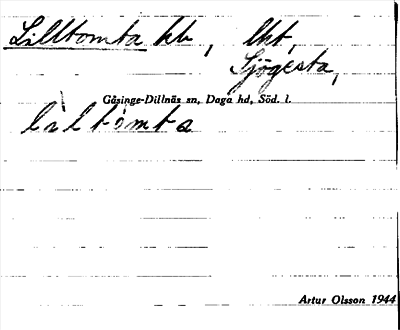 Lilltomta hb, lht,
Sjögesta,
Gåsinge-Dillnäs sn, Daga hd, Söd. l.
lìltòmta
Artur Olsson 1944